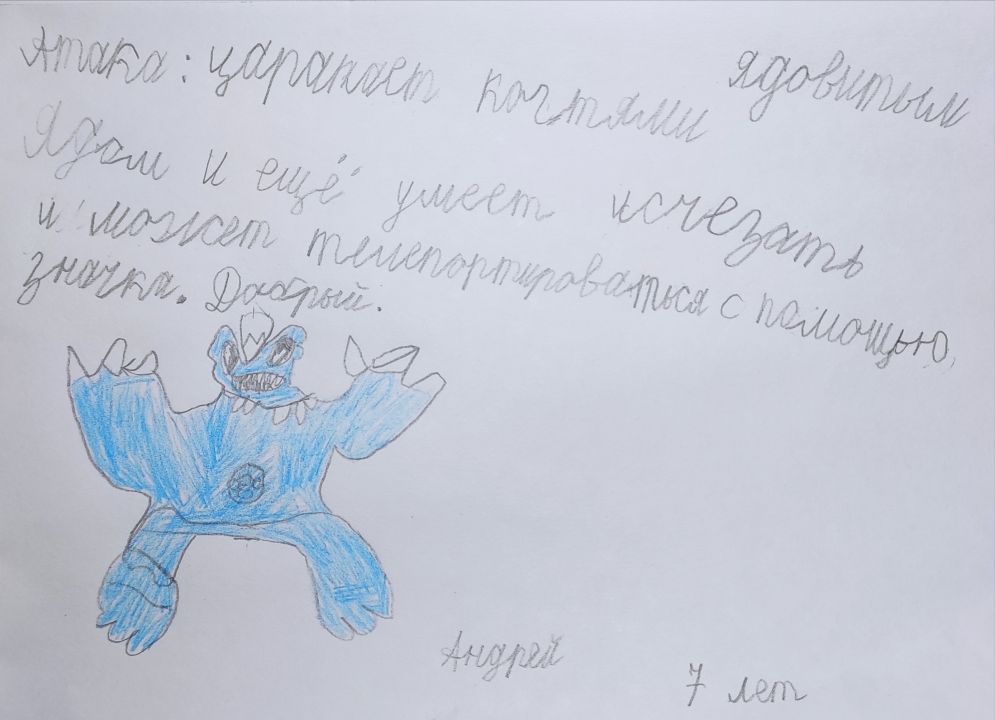 Атака: царапает когтями ядовитым
ядом и ещё умеет исчезать
и может телепортироваться с помощью
значка. Добрый.
Андрей
7 лет